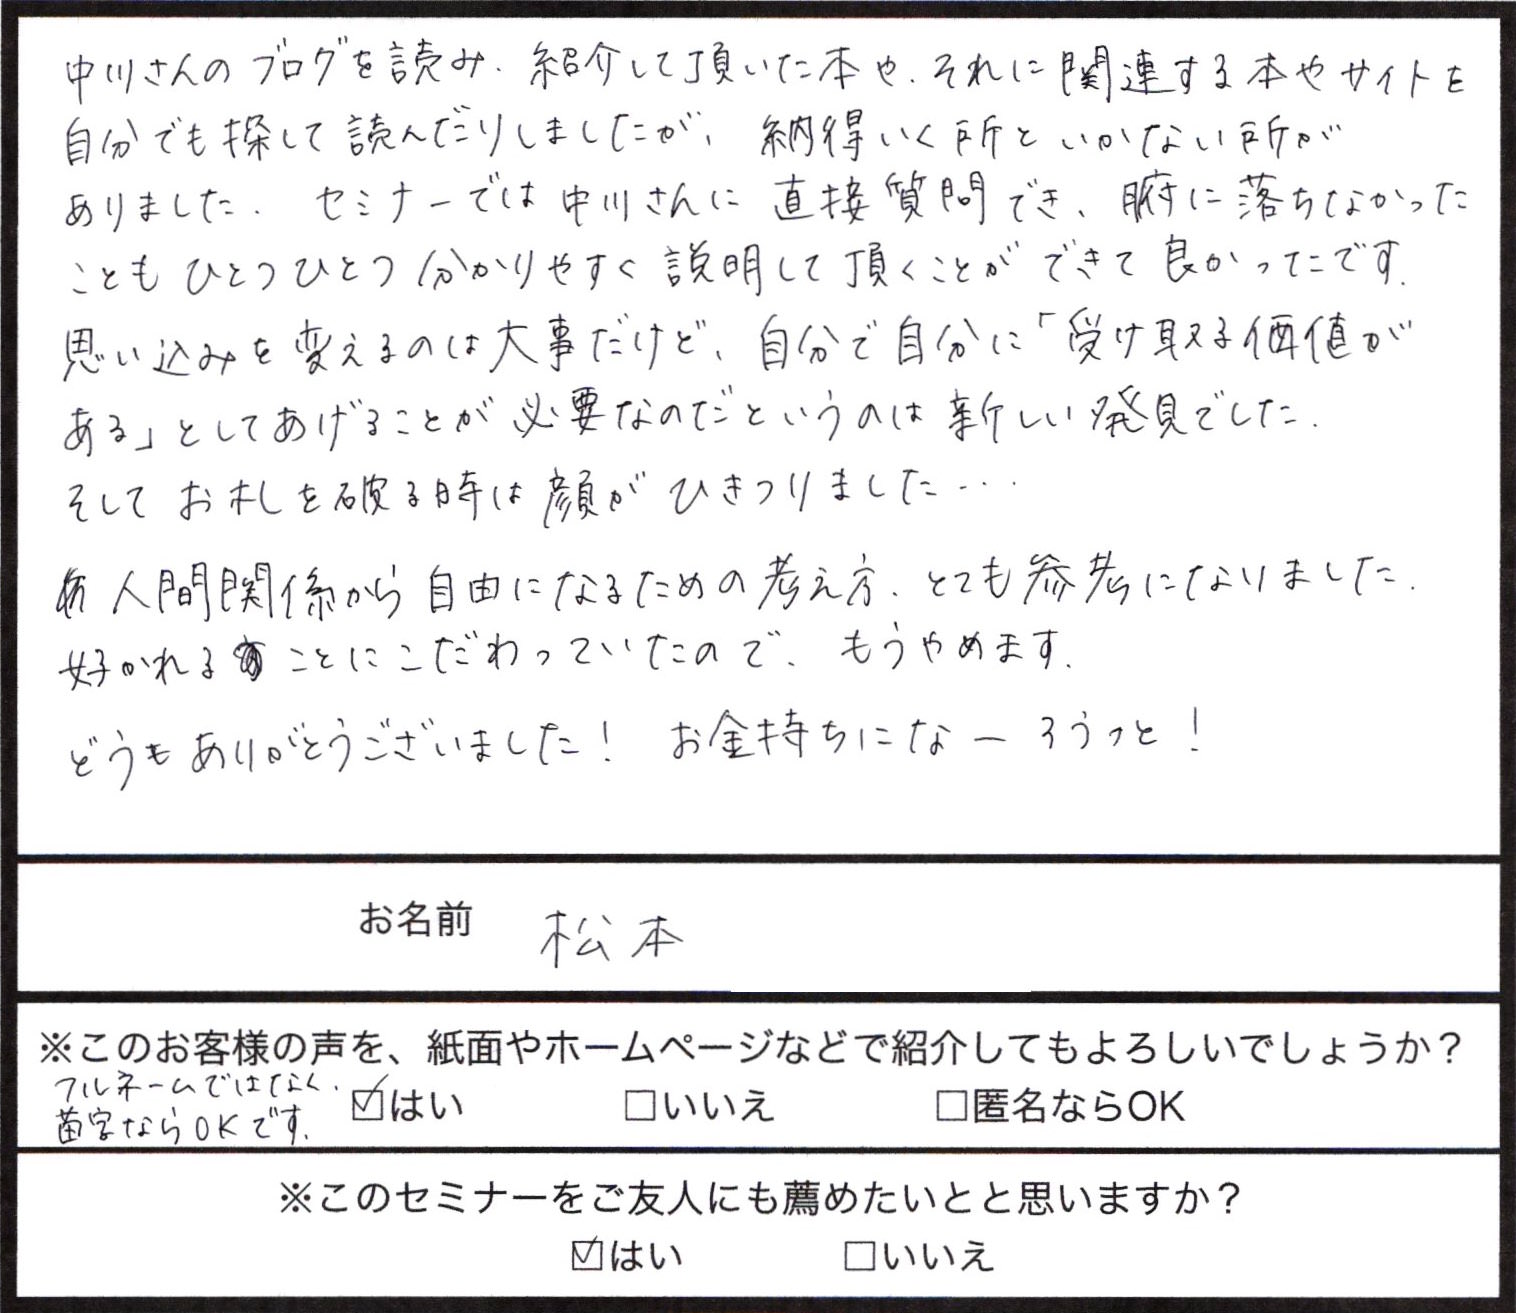 中川さんのブログを読み、紹介して頂いた本や、それに関連する本やサイトを
自分でも探して読んだりしましたが、納得いく所といかない所が
ありました。セミナーでは中川さんに直接質問でき、腑に落ちなかった
こともひとつひとつ分かりやすく説明して頂くことができて良かったです。
思い込みを変えるのは大事だけど、自分で自分に「受け取る価値が
ある」としてあげることが必要なのだというのは新しい発見でした。
そしてお札を破る時は顔がひきつりました…
人間関係から自由になるための考え方、とても参考になりました。
好かれることにこだわっていたので、もうやめます。
どうもありがとうございました! お金持ちになーろうっと!
お名前 松本
※このお客様の声を、紙面やホームページなどで紹介してもよろしいでしょうか?
フルネームではなく、
苗字ならOKです。
☑はい □いいえ □匿名ならOK
※このセミナーをご友人にも薦めたいとと思いますか?
☑はい □いいえ